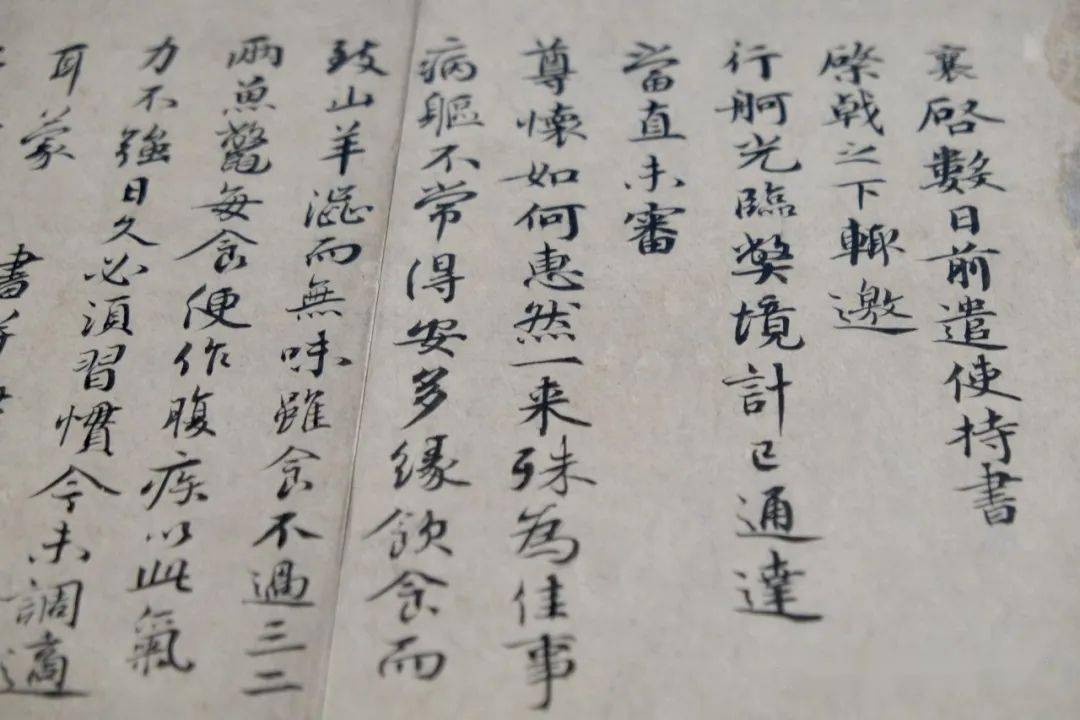 襄啓數日前遣使持書
棨戟之下輙邀
行舸光臨獘境計已通達
當直未審
尊懷如何惠然一来殊為佳事
病軀不常得安多緣飲食而
致山羊澁而無味雖食不過三二
兩魚鼈每食便作腹疾以此氣
力不強日久必須習慣今未調適
耳蒙
書